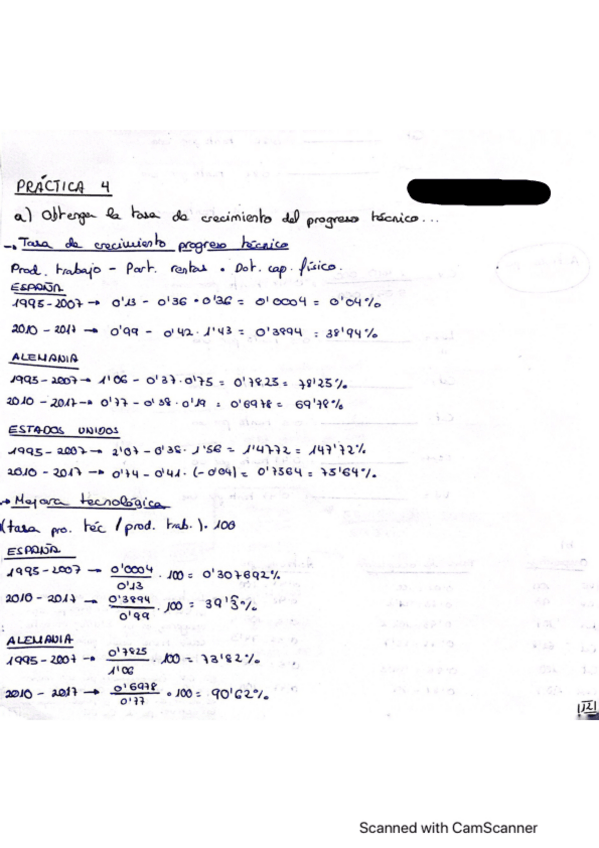 PRÁCTICA 4
a) Obtenga la tasa de crecimiento del progreso técnico...
→ Tasa de crecimiento progreso técnico
Prod. trabajo - Part. rentas • Dot. cap. físico.
ESPAÑA
1995-2007 → 0'13 - 0'36 • 0'36 = 0'0004 = 0'04%
2010 - 2017 → 0'99 - 0'42 · 1'43 = 0'3894 = 38'94%
ALEMANIA
1995-2007 → 1'06 - 0'37·0'75 = 0'7825 = 78'25%
2010 - 2017 → 0'77 - 0'38 · 0'19 = 0'6978 = 69'78%
ESTADOS UNIDOS
1995-2007 → 2'07 - 0'38 · 1'56 = 1'4772 = 147'72%
2010 - 2017 → 0'74 - 0'41 · (-0'04) = 0'7564 = 75'64%
→ Mejora tecnológica
(tasa pro. téc / prod. trab.) · 100
ESPAÑA
1995-2007 → 0'0004 / 0'13 · 100 = 0'307692%
2010 - 2017 → 0'3894 / 0'99 · 100 = 39'3%
ALEMANIA
1995-2007 → 0'7825 / 1'06 · 100 = 73'82%
2010 - 2017 → 0'6978 / 0'77 • 100 = 90'62%
Scanned with CamScanner